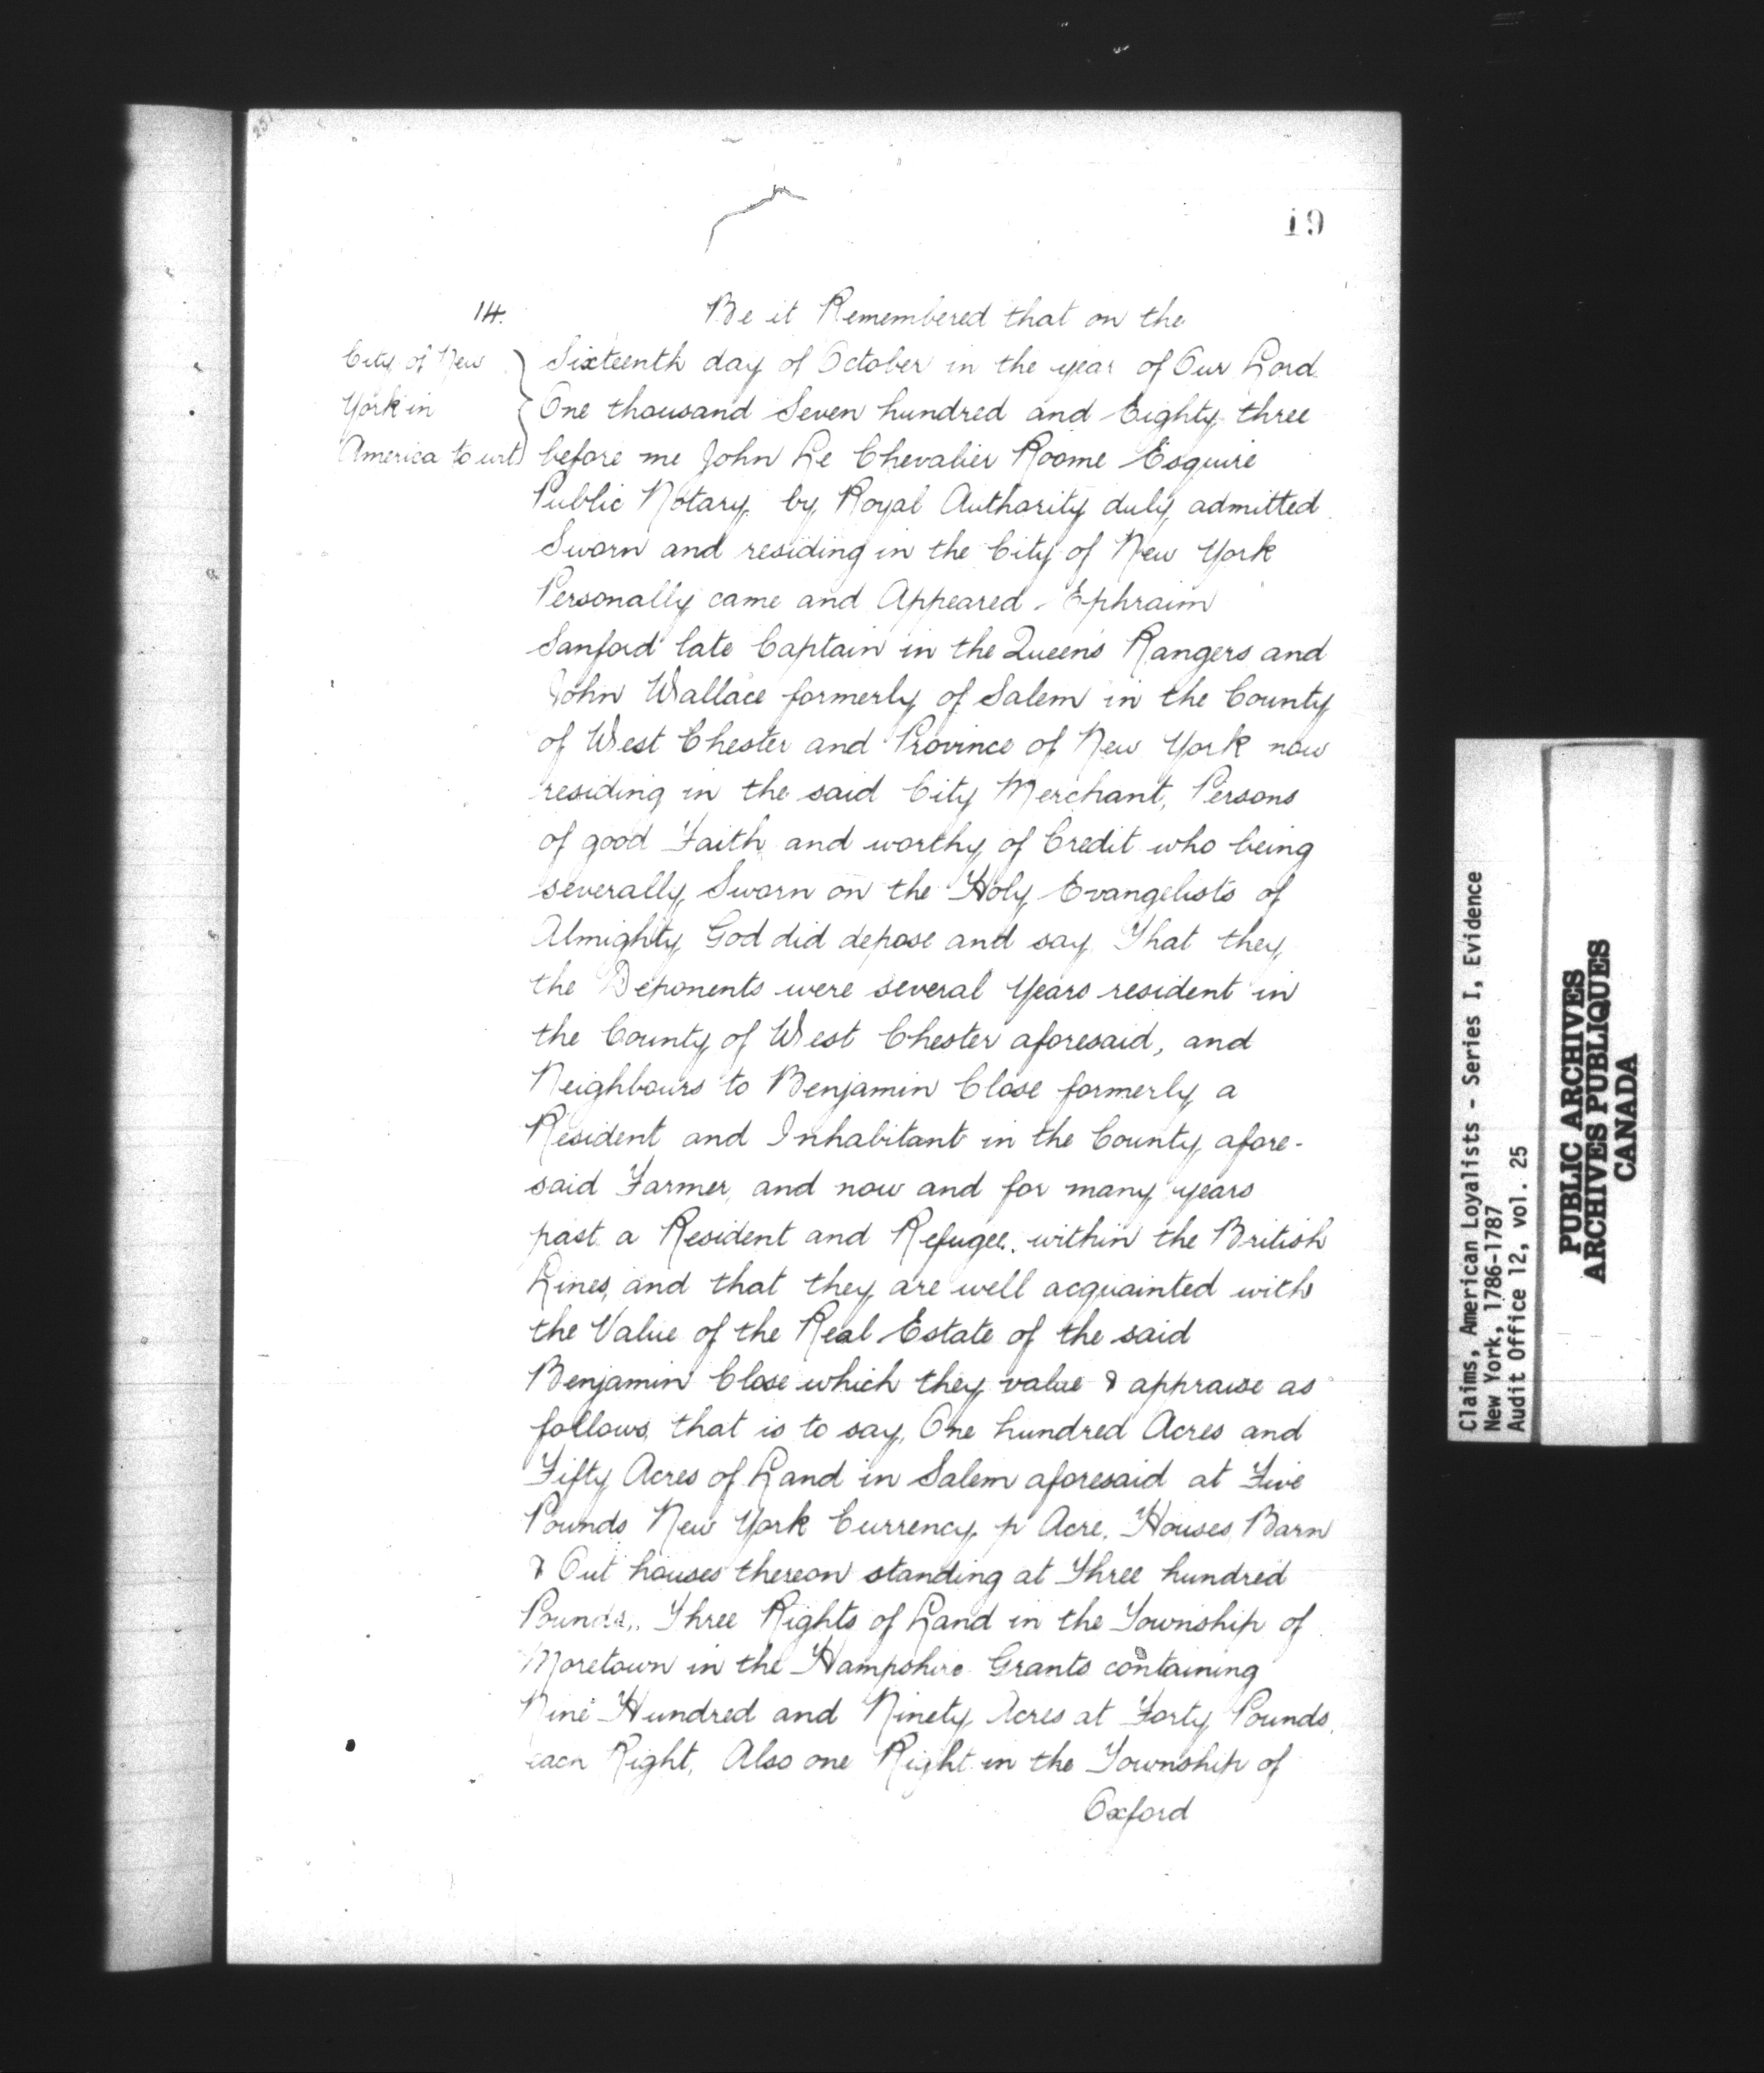 19
14.
Be it Remembered that on the
City of New
York in
America to wit
Sixteenth day of October in the year of Our Lord
One thousand Seven hundred and Eighty three
before me John Le Chevalier Roome Esquire
Public Notary by Royal Authority duly admitted
Sworn and residing in the City of New York
Personally came and Appeared - Ephraim
Sanford late Captain in the Queens Rangers and
John Wallace formerly of Salem in the County
of West Chester and Province of New York now
residing in the said City Merchant, Persons
of good Faith and worthy of Credit who being
severally Sworn on the Holy Evangelists of
Almighty God did depose and say That they
the Deponents were several Years resident in
the County of West Chester aforesaid, and
Neighbours to Benjamin Close formerly a
Resident and Inhabitant in the County afore-
said Farmer, and now and for many years
past a Resident and Refugee within the British
Lines, and that they are well acquainted with
the Value of the Real Estate of the said
Benjamin Close which they value & appraise as
follows, that is to say, One hundred Acres and
Fifty Acres of Land in Salem aforesaid at Five
Pounds New York Currency p Acre, Houses, Barn
& Out houses thereon standing at Three hundred
Pounds,, Three Rights of Land in the Township of
Moretown in the Hampshire Grants containing
Nine Hundred and Ninety Acres at Forty Pounds
each Right, Also one Right in the Township of
Oxford
Claims, American Loyalists - Series I, Evidence
New York, 1786-1787
Audit Office 12, vol. 25
PUBLIC ARCHIVES
ARCHIVES PUBLIQUES
CANADA